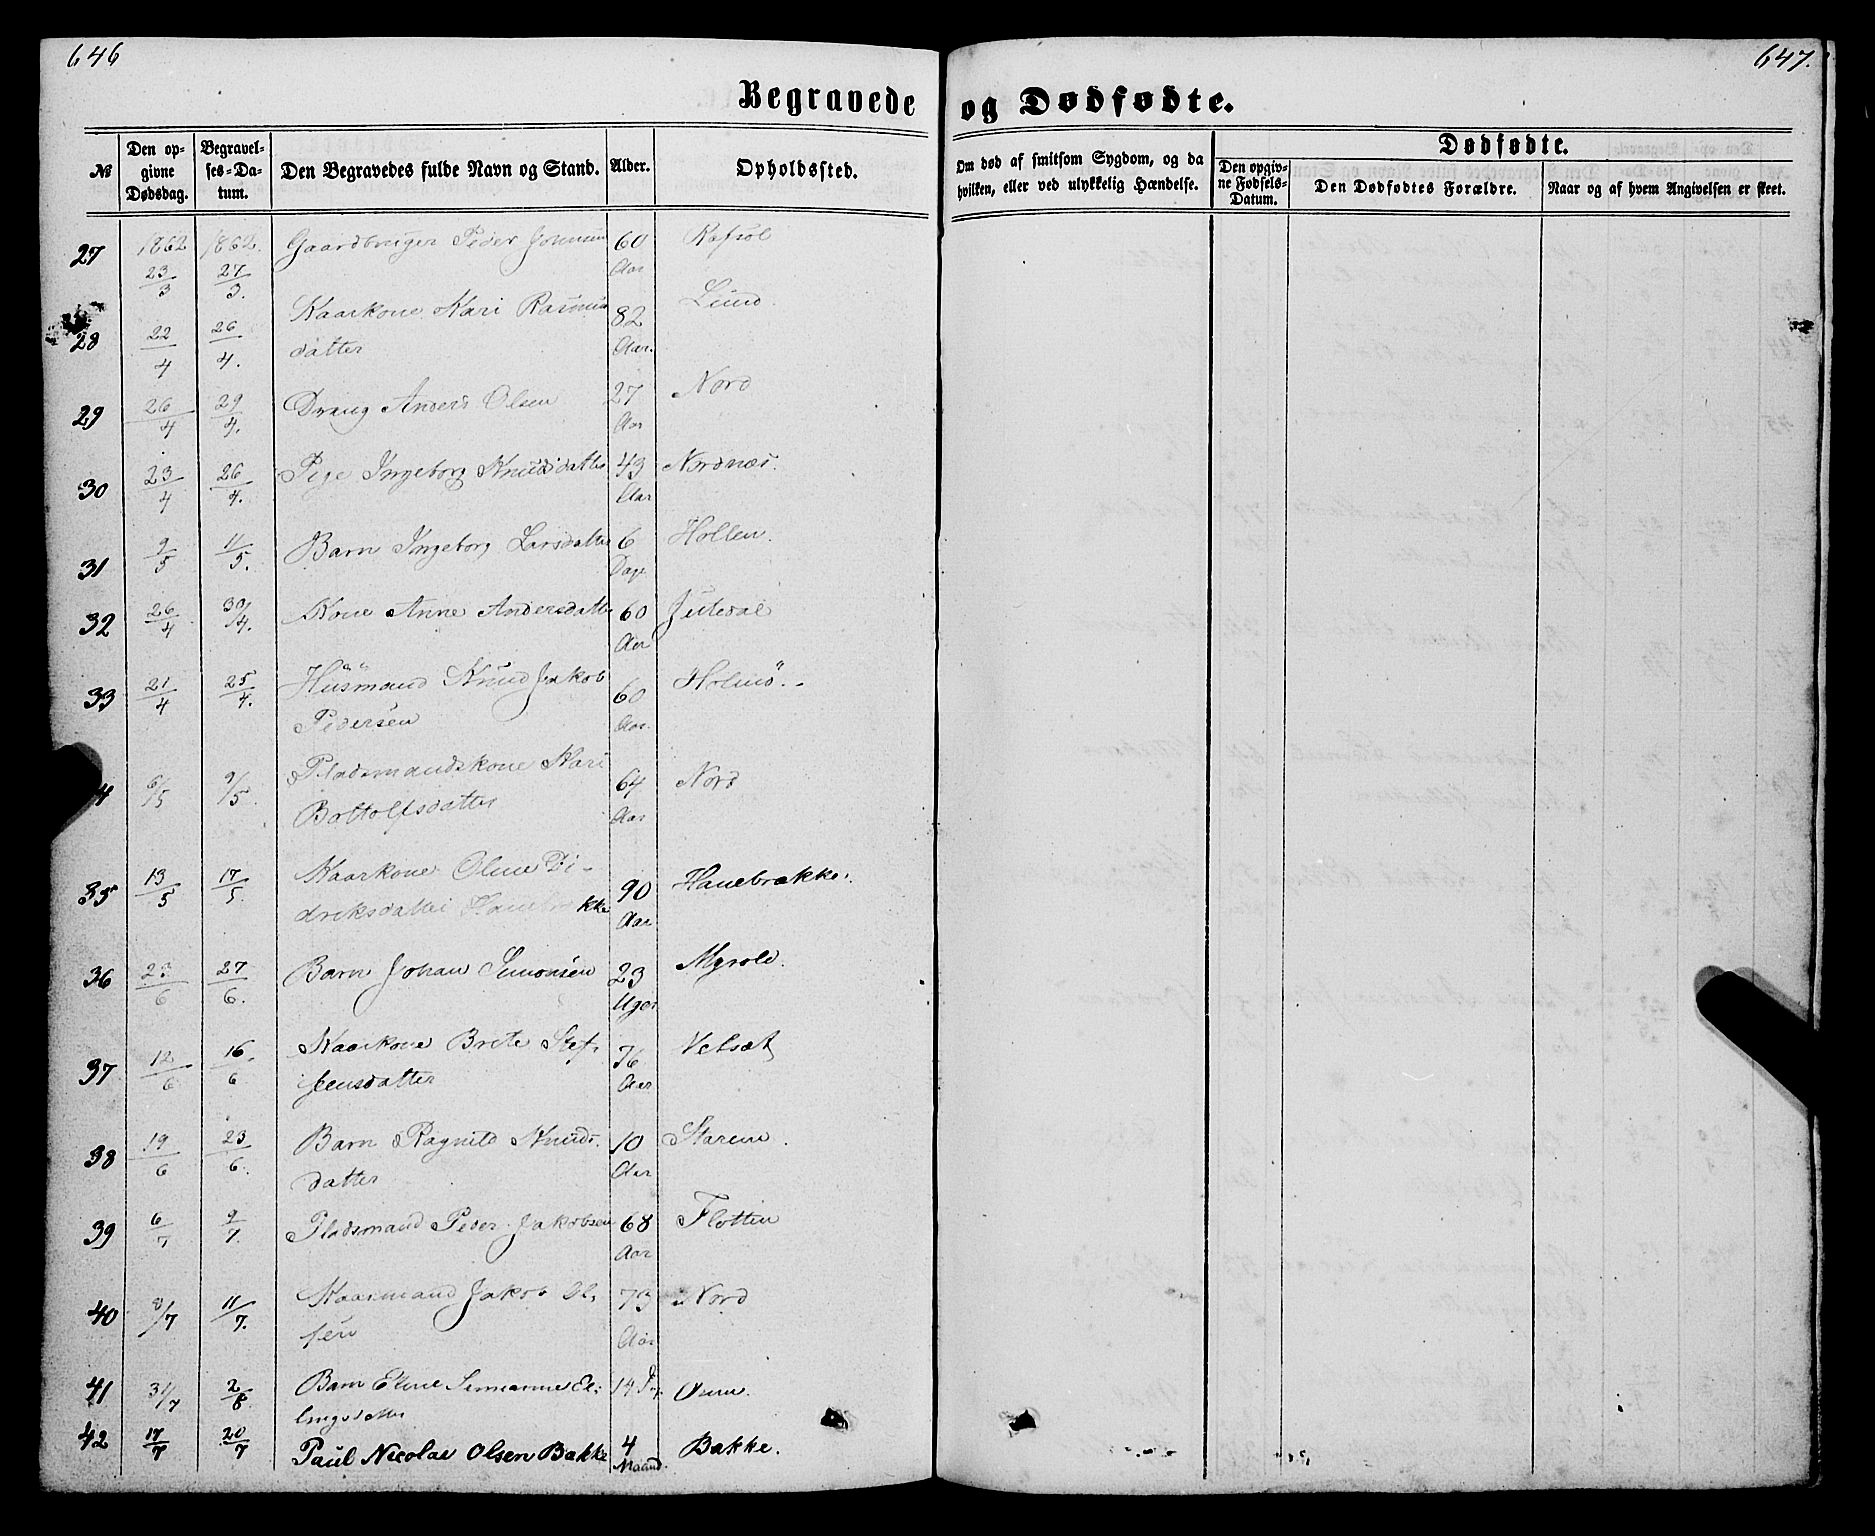 646
647.
Begravede og Dødfødte.
№
Den opgivne Dødsdag.
Begravelses-Datum.
Den Begravedes fulde Navn og Stand.
Alder.
Opholdssted.
Om død af smitsom Sygdom, og da hvilken, eller ved ulykkelig Hændelse.
Dødfødte.
Den opgivne Fødsels-Datum.
Den Dødfødtes Forældre.
Naar og af hvem Angivelsen er skeet.
27 1862 23/3 1862. 27/3. Gaardbruger Peder Johnsen 60 Aar Refsøl
28 22/4 26/4. Kaarkone Kari Rasmus
datter 82 Aar. Lund.
29 26/4 29/4. Dreng Anders Olsen 27 Aar Nord
30 23/4 26/4. Pige Ingeborg Knudsdatter 43 Aar Nordnæs.
31 9/5 11/5. Barn Ingeborg Larsdatter 6 Dage Hollen.
32 26/4 30/4. Kone Anne Andersdatter 60 Aar Juledal
33 21/4 25/4. Huusmand Knud Jakob
Pedersen 60 Aar. Holmø.
4 6/5 9/5. Pladsmandskone Kari
Bottolfsdatter 64 Aar Nord
35 13/5 17/5. Kaarkone Oline Di-
driksdatter Hanebrække 90 Aar Hanebrække.
36 23/6 27/6. Barn Johan Simonsen 23 Uger Myrold.
37 12/6 16/6 Kaarkone Brite Stef-
fensdatter 76 Aar Vetsæt
38 19/6 23/6. Barn Ragnild Knuds-
datter 10 Aar Starem.
39 6/7 9/7. Pladsmand Peder Jakobsen 68 Aar Flotten
40 8/7 11/7. Kaarmand Jakob Ol-
sen 73 Aar Nord
41 31/7 2/8. Barn Eline Simianne El-
lingsdatter 14 D. Oure.
42 17/7 20/7 Paul Nicolai Olsen Bakke 4 Maand. Bakke.